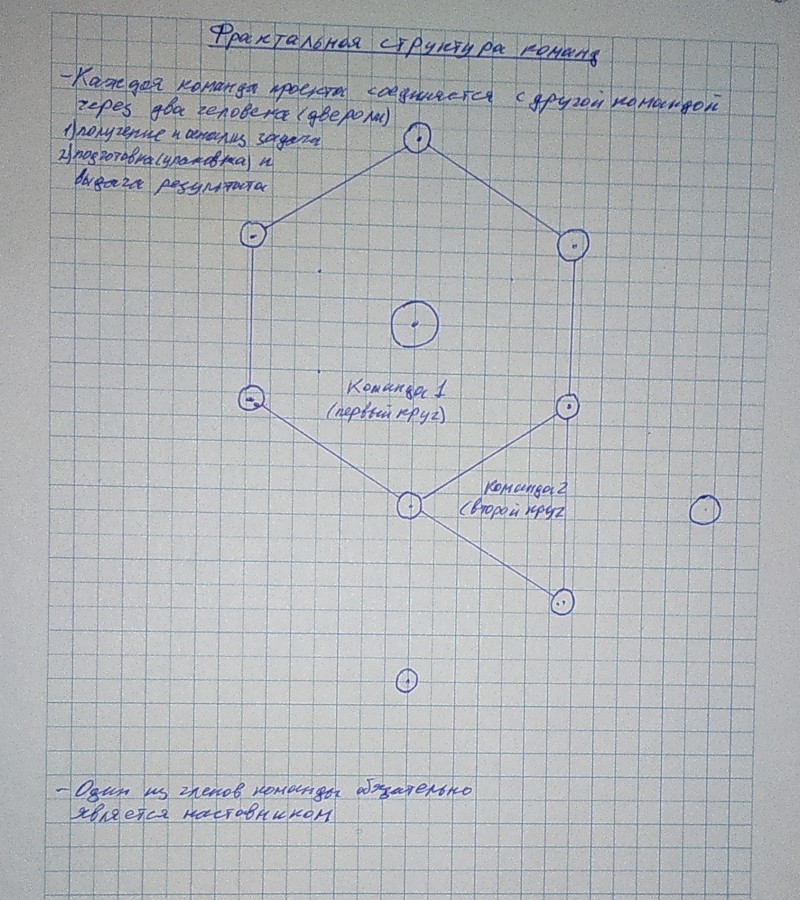 Фрактальная структура команд
- Каждая команда проекта соединяется с другой командой
через два человека (две роли)
1) получение и анализ задач
2) подготовка (упаковка) и
выдача результата
Команда 1
(первый круг)
Команда 2
(второй круг
- Один из членов команды обязательно
является наставником